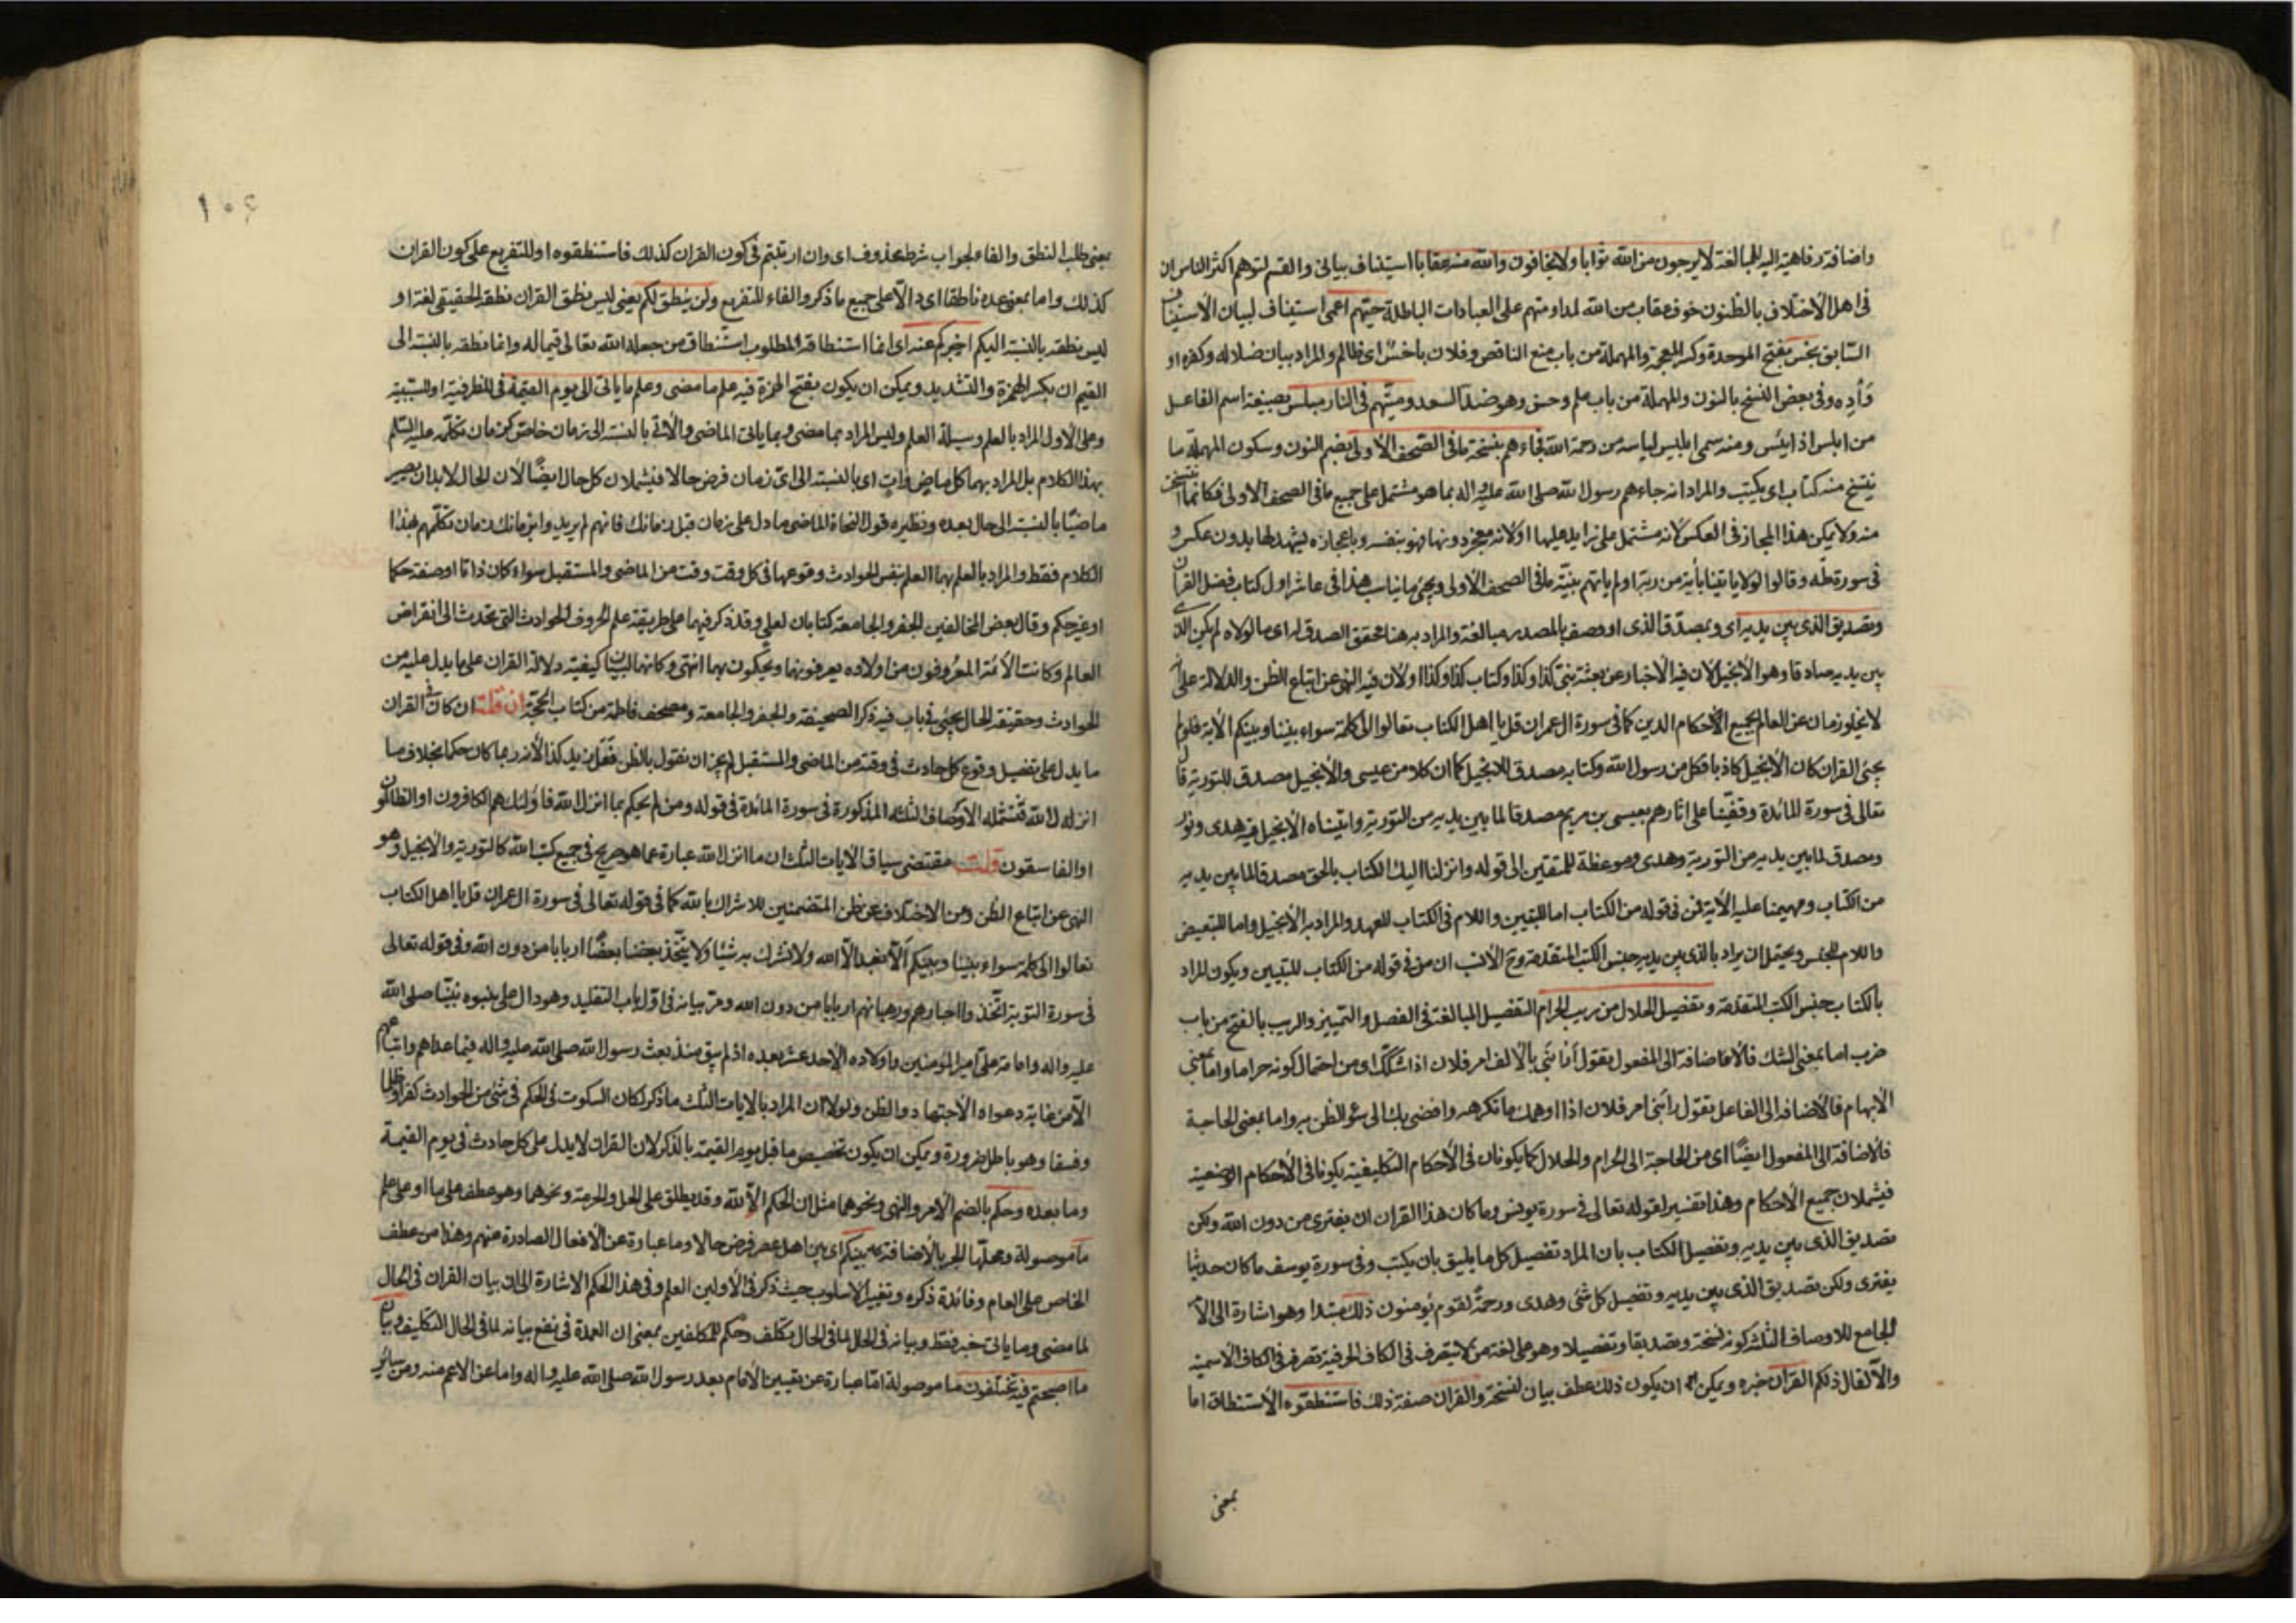 واضافة رفاهية اليه للمبالغة لا يرجون من الله ثوابا ولا يخافون والله منه عقابا استيناف بياني والقسم لتوهم اكثر الناس ان
في اهل الاختلاف بالظنون خوف عقاب من الله لمداومتهم على العبادات الباطلة حيّهم اعمى استيناف لبيان الاستيناف
السابق بخس بفتح الموحدة وكسر المعجمة والمهملة من باب منع الناقص وفلان باخس اى ظالم والمراد بيان ضلاله وكفره او
وفي بعض النسخ بالنون والمهملة من باب علم وحسن وهو ضد السعد وميّتهم في النار مبلس بصيغة اسم الفاعل
من ابلس اذا يئس ومنه سمى ابليس لياسه من رحمة الله فجاءهم بنسخة ما في الصحف الاولى بضم النون وسكون المهملة ما
ينتسخ منه كتاب اى يكتب والمراد انه جاءهم رسول الله صلى الله عليه واله بما هو مشتمل على جميع ما في الصحف الاولى فكانما انتسخت
منه ولا يمكن هذا المجاز في العكس لانه مشتمل على زايد عليها او لانه معجز دونها فهو بنفسه وباعجازه يشهد لها بدون عكس و
في سورة طه وقالوا لولا ياتينا باية من ربه اولم ياتهم بينة ما في الصحف الاولى ويجئ ما يناسب هذا في عاشر اول كتاب فضل القران
وتصديق الذي بين يديه اى وبمصدق الذى او وصف بالمصدر مبالغة والمراد به هنا محقق الصدق له اى ما لولاه لم يكن الذى
بين يديه صادقا وهو الانجيل لان فيه الاخبار عن بعثة نبى كذا وكذا وكتاب كذا وكذا او لان فيه النهى عن اتباع الظن والدلالة على ان
لا يخلو زمان عن العالم بجميع الاحكام الدين كما في سورة ال عمران قل يا اهل الكتاب تعالوا الى كلمة سواء بيننا وبينكم الاية فلو لم
يجئ القران كان الانجيل كاذبا فكل من رسول الله وكتابه مصدق للانجيل كما ان كلا من عيسى والانجيل مصدق للتورية قال
تعالى في سورة المائدة وقفينا على اثارهم بعيسى بن مريم مصدقا لما بين يديه من التورية واتيناه الانجيل فيه هدى ونور
ومصدقا لما بين يديه من التورية وهدى وموعظة للمتقين الى قوله وانزلنا اليك الكتاب بالحق مصدقا لما بين يديه
من الكتاب ومهيمنا عليه الاية فمن في قوله من الكتاب اما للتبيين واللام في الكتاب للعهد والمراد به الانجيل واما للتبعيض
واللام للجنس ويحتمل ان يراد بالذى بين يديه جنس الكتب المتقدمة وح الانسب ان من في قوله من الكتاب للتبيين ويكون المراد
بالكتاب جنس الكتب المتقدمة وتفصيل الحلال من ريب الحرام التفصيل المبالغة في الفصل والتمييز والريب بالفتح من باب
ضرب اما بمعنى الشك فالاضافة الى المفعول تقول رابني بالالف امر فلان اذا شككك اى من احتمال كونه حراما واما بمعنى
الابهام فالاضافة الى الفاعل تقول رابنى امر فلان اذا اوهمك ما تكرهه وافضى بك الى سوء الظن به واما بمعنى الحاجة
فالاضافة الى المفعول ايضا اى من الحاجة الى الحرام والحلال كما يكونان في الاحكام التكليفية يكونا في الاحكام الوضعية
فيشملان جميع الاحكام وهذا تفسير لقوله تعالى في سورة يونس وما كان هذا القران ان يفترى من دون الله ولكن
تصديق الذى بين يديه وتفصيل الكتاب بان المراد تفصيل كل ما يليق بان يكتب وفي سورة يوسف ما كان حديثا
يفترى ولكن تصديق الذى بين يديه وتفصيل كل شئ وهدى ورحمة لقوم يؤمنون ذلك مبتدا وهو اشارة الى الامر
الجامع للاوصاف الثلثة كونه نسخة وتصديقا وتفصيلا وهو على لغة من لا يتصرف في الكاف الحرفية تصرفه في الكاف الاسمية
والا لقال ذلكم القران خبره ويمكن ان يكون ذلك عطف بيان لنسخة والقران صفة ذلك فاستنطقوه الاستنطاق اما
بمعنى
١٠٦
بمعنى طلب النطق والفاء لجواب شرط محذوف اى وان ارتبتم في كون القران كذلك فاستنطقوه او للتفريع على كون القران
كذلك واما بمعنى عده ناطقا اى دالا على جميع ما ذكر والفاء للتفريع ولن ينطق لكم يعنى ليس نطق القران نطقه الحقيقى لغة او
ليس نطقه بالنسبة اليكم اخبركم عنه اى انما استنطاقه المطلوب استنطاق من جعله الله تعالى قيما له وانما نطقه بالنسبة الى
القيم ان بكسر الهمزة والتشديد ويمكن ان يكون بفتح الهمزة فيه علم ما مضى وعلم ما ياتى الى يوم القيمة في للظرفية او للسببية
وعلى الاول المراد بالعلم وسيلة العلم وليس المراد بما مضى وبما ياتى الماضى والاتى بالنسبة الى زمان خاص كزمان تكلمه عليه السلم
بهذا الكلام بل المراد بهما كل ماض وات اى بالنسبة الى اى زمان فرض حالا فيشملان كل حال ايضا لان الحال لا بد ان يصير
ماضيا بالنسبة الى حال بعده ونظيره قول النحاة الماضى ما دل على زمان قبل زمانك فانهم لم يريدوا بزمانك زمان تكلمهم بهذا
الكلام فقط والمراد بالعلم بهما العلم بنفس الحوادث وقوعها في كل وقت وقت من الماضى والمستقبل سواء كان ذاتا او صفة حكما
او غير حكم وقال بعض المخالفين الجفر والجامعة كتابان لعلى وقد ذكر فيهما على طريقة علم الحروف الحوادث التى تحدث الى انقراض
العالم وكانت الائمة المعروفون من اولاده يعرفونهما ويحكمون بهما انتهى وكانهما لبيان كيفية دلالة القران على ما يدل عليه من
الحوادث وحقيقة الحال يجئ في باب فيه ذكر الصحيفة والجفر والجامعة ومصحف فاطمة من كتاب الحجة ان قلت ان كان في القران
ما يدل على تفصيل وقوع كل حادث في وقته من الماضى والمستقبل لم يجز ان نقول بالظن فعل زيد كذا لانه ربما كان حكما بخلاف ما
انزله الله فتشمله الاوصاف الثلثة المذكورة في سورة المائدة في قوله ومن لم يحكم بما انزل الله فاولئك هم الكافرون او الظالمون
او الفاسقون قلت مقتضى سياق الايات الثلث ان ما انزل الله عبارة عما هو صريح في جميع كتب الله كالتورية والانجيل وهو
النهى عن اتباع الظن وعن الاختلاف عن ظن المتضمنين للاشراك بالله كما في قوله تعالى في سورة ال عمران قل يا اهل الكتاب
تعالوا الى كلمة سواء بيننا وبينكم الا نعبد الا الله ولا نشرك به شيئا ولا يتخذ بعضنا بعضا اربابا من دون الله وفي قوله تعالى
في سورة التوبة اتخذوا احبارهم ورهبانهم اربابا من دون الله ومر بيانه في اول باب التقليد وهو دال على نبوة نبينا صلى الله
عليه واله وامامة على امير المؤمنين واولاده الاحد عشر بعده اذ لم يبق منذ بعث رسول الله صلى الله عليه واله فيما عداهم واتباعهم
الا من غاية دعواه الاجتهاد والظن ولولا ان المراد بالايات الثلث ما ذكر لكان السكوت عن الحكم في شئ من الحوادث كفرا وظلما
وفسقا وهو باطل ضرورة ويمكن ان يكون تخصيص ما قبل يوم القيمة بالذكر لان القران لا يدل على كل حادث في يوم القيمة
وما بعده وحكم بالضم الامر والنهى ونحوهما مثل ان الحكم الا لله وقد يطلق على الحل والحرمة ونحوهما وهو عطف على ما او على علم
ما موصولة ومحلها الجر بالاضافة بينكم اى بين اهل عصر فرض حالا وما عبارة عن الافعال الصادرة منهم وهذا من عطف
الخاص على العام وفائدة ذكره وتغيير الاسلوب حيث ذكر في الاولين العلم وفي هذا الحكم الاشارة الى ان بيان القران في الحال
لما مضى وما ياتى خبر فقط وبيانه في الحال لما في الحال تكلف وحكم للمكلفين بمعنى ان العمدة في نفع بيانه لما في الحال التكليف وبيان
ما اصبحتم فيه تختلفون ما موصولة اما عبارة عن تعيين الامام بعد رسول الله صلى الله عليه واله واما عن الاعم منه ومن سائر